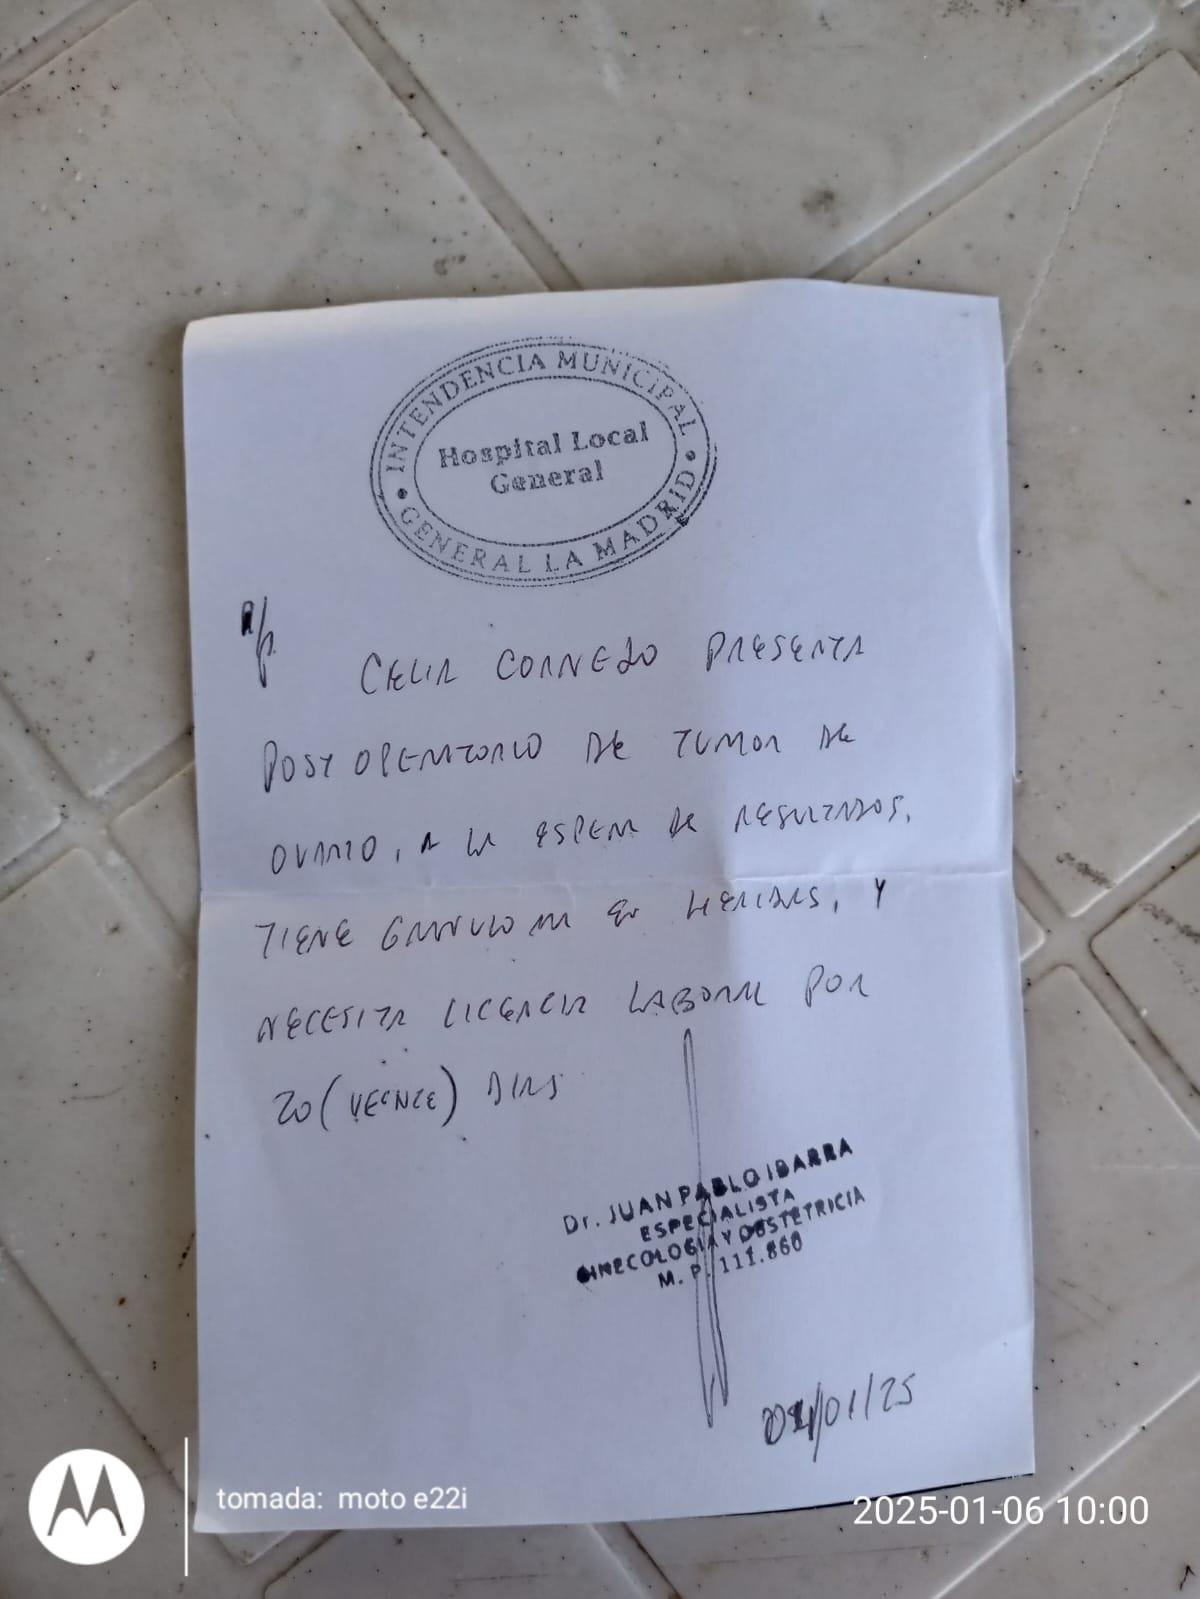 INTENDENCIA MUNICIPAL
Hospital Local
General
GENERAL LA MADRID
R/p.
CELIA CORNEJO PRESENTA
POST OPERATORIO DE TUMOR DE
OVARIO, A LA ESPERA DE RESULTADOS.
TIENE GRANULOMA EN HERIDAS, Y
NECESITA LICENCIA LABORAL POR
20 (VEINTE) DIAS
Dr. JUAN PABLO IBARRA
ESPECIALISTA
GINECOLOGIA Y OBSTETRICIA
M. P. 111.860
/01/25
tomada: moto e22i
2025-01-06 10:00